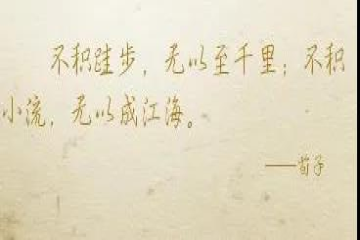 不积跬步，无以至千里；不积
小流，无以成江海。
——荀子